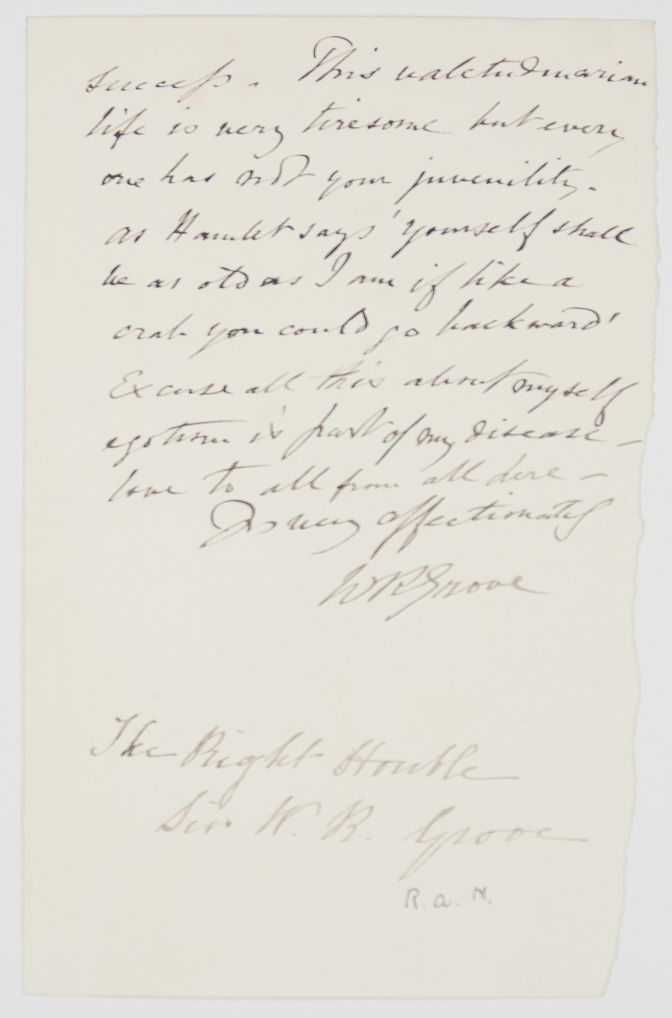 success. This valetudinarian
life is very tiresome but every
one has not your juvenility.
as Hamlet says 'yourself shall
be as old as I am if like a
crab you could go backward'
Excuse all this about myself
egotism is part of my disease –
love to all from all here –
Yrs very affectionately
WRGrove
The Right Honble
Sir W. R. Grove
R. a. M.